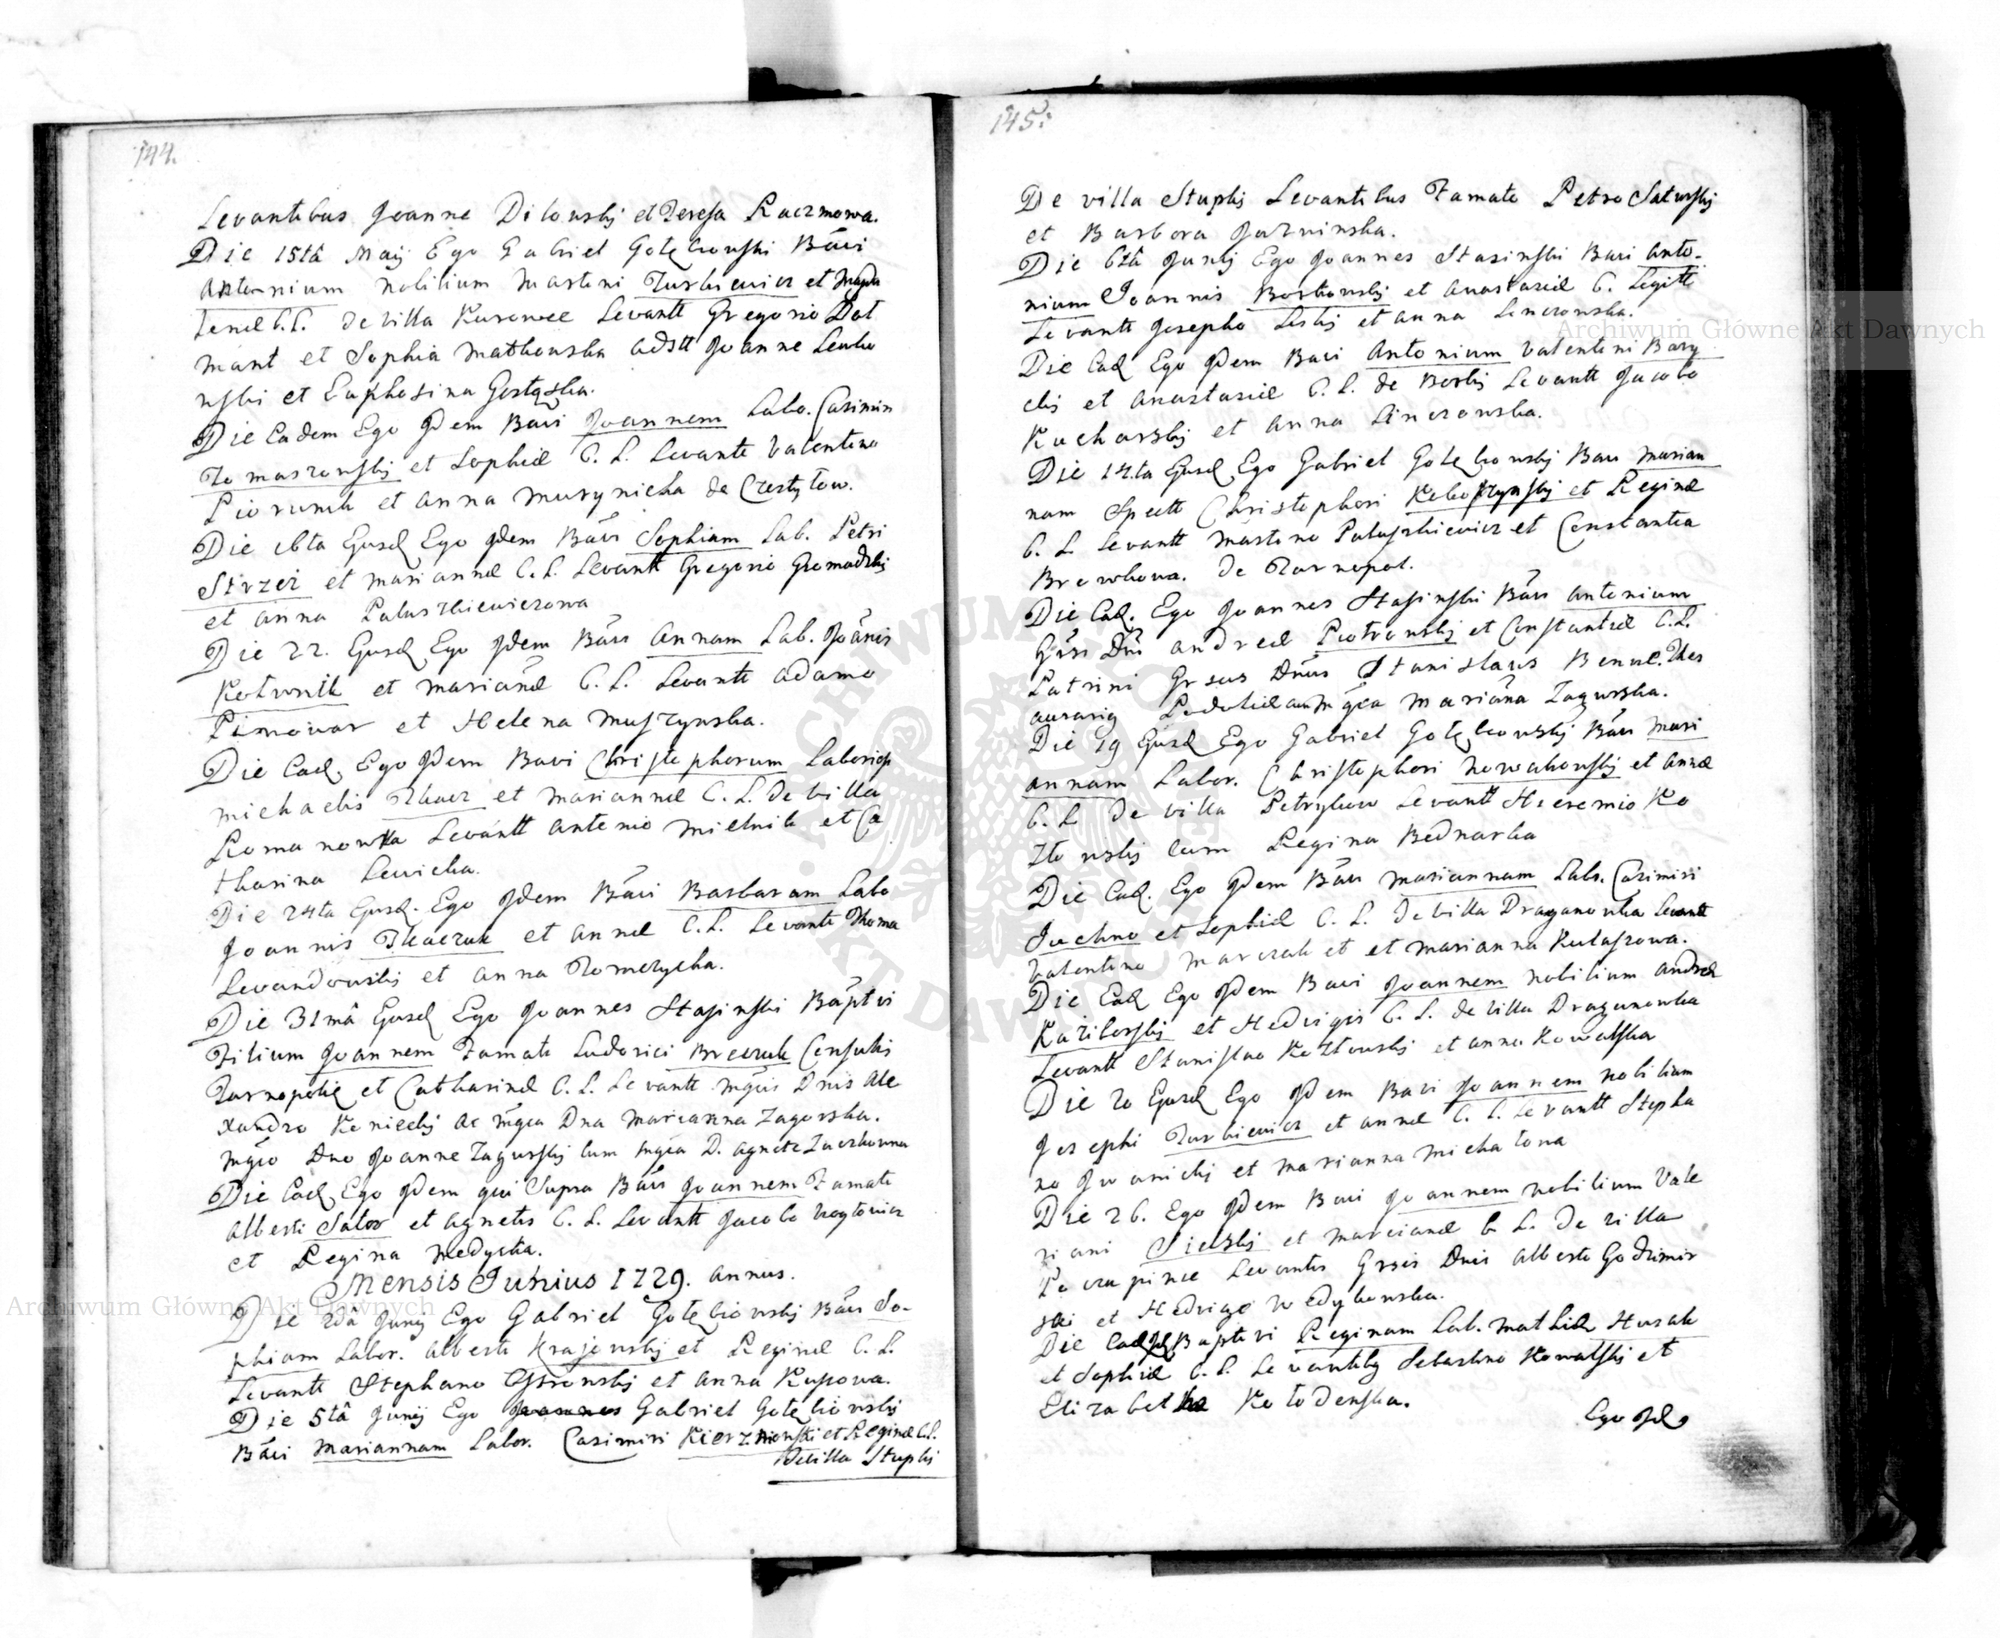 144.
Levantibus Joanne Dilouskj et Teresa Kaczmowa.
Die 15tâ Maij Ego Gabriel Gołębiouski Bãvi
Antonium nobilium Martini Turkieuicz et Magda
lenæ C. L. de villa Kurowce Levantt Gregorio Dot
mant et Sophia Mathouska adstt Joanne
et Euphosina
Die Eadem Ego Idem Bãvi Joannem Labo. Casimiri
Tomaszouskj et Sophiæ C. L. Levantt Valentino
Piorunik et Anna Murynicha de
Die 16ta Ejusd Ego Idem Bãvi Sophiam Lab. Petri
Strzez et Mariannæ C. L. Levantt Gregorio Gromadzkj
et Anna Paluszkieuiczowa
Die 22. Ejusd Ego Idem Bãvi Annam Lab. Joãnis
Kotunik et Mariãnæ C. L. Levantt Adamo
Piwowar et Helena Muszynska.
Die Ead. Ego Idem Bavi Christophorum Laborios
Michaelis Tkacz et Mariannæ C. L. De villa
Romanowka Levantt Antonio Mielnik et Ca
tharina Levicka.
Die 24ta Ejusd. Ego Idem Bãvi Barbaram Labo
Joannis Tkaczuk et Annæ C. L. Levantt Thoma
Levandouskj et Anna
Die 31mâ Ejusd Ego Joannes Stasinski Bãptvi
Filium Joannem Famati Ludovici Breczuk Consulis
Tarnopolie et Catharinæ C. L. Levantt Mgcis Dnis Ale
xandro Konieckj ac Mgca Dna Marianna Zagorska.
Mgco Dno Joanne Zagurskj cum Mgca D. Agneta
Die Ead Ego Idem qui Supra Bãvi Joannem Famati
Alberti Sator et Agnetis C. L. Levantt Jacobo Woytouicz
et Regina Medycka.
Mensis Junius 1729. annus.
Die 2dâ Junij Ego Gabriel Gołębiouskj Bãvi So-
phiam Labor. Alberti Krajeuskj et Reginæ C. L.
Levantt Stephano Ostrouskj et Anna Kusowa.
Die 5tâ Junij Ego Joannes Gabriel Gołębiouskj
Bãvi Mariannam Labor. Casimiri et Reginæ C. L.
De villa Stupki
145.
De villa Stupkj Levantibus Famato Petro Saturskj
et Barbara
Die 6tâ Junij Ego Joannes Stasinski Bavi Anto-
nium Joannis Borkouskj et Anastasiæ C. Legitt
Levantt Josepho Liskj et Anna
Die Ead Ego Idem Bavi Antonium Valentini Bary
ckj et Anastasiæ C. L. de Borkj Levantt Jacobo
Kucharskj et Anna
Die 14.ta Ejusd Ego Gabriel Gołębiouskj Bavi Marian
nam Spectt Christophori et Reginæ
C. L. Levantt Martino Paluszkieuicz et Constantia
Browkowa. De Tarnopol.
Die Ead. Ego Joannes Stasinski Bãvi Antonium
Grsi Dni Andreæ Piotrouskj et Constantiæ C. L.
Patrini Grsus Dnus Stanislaus Thes
aurarig Podoliæ cum Mgca Mariãna Zagurska.
Die 19 Ejusd Ego Gabriel Gołębiouskj Bãvi Mari
annam Labor. Christophori Nowakouskj et Annæ
C. L. De villa Petrykow Levantt Hieremio Ko
złouskj cum Regina Bednarka
Die Ead. Ego Idem Bãvi Mariannam Labo. Casimiri
Juchno et Sophiæ C. L. De villa Draganowka Levantt
Valentino et Marianna Kulaszowa.
Die Ead Ego Idem Bavi Joannem nobilium Andreæ
et Hedvigis C. L. de villa Draganowka
Levantt Stanislao Kozłouskj et Anna Kowalska
Die 20 Ejusd Ego Idem Bavi Joannem nobilium
Josephi Turkieuicz et Annæ C. L. Levantt Stepha
no Iwanickj et Marianna Michałowa
Die 26. Ego Idem Bavi Joannem nobilium Vale
riani Sielskj et Mariannæ C. L. De villa
Poczapince Levantis Grsis Dnis Alberto Godzimir
ski et Hedvige
Die Ead Bapttvi Reginam Lab. Mathiæ Husak
et Sophiæ C. L. Levantibg Sebastiano Kowalskj et
Elizabetha Kołodenska.
Ego Id
Archiwum Główne Akt Dawnych
Archiwum Główne Akt Dawnych
ARCHIWUM GŁÓWNE AKT DAWNYCH